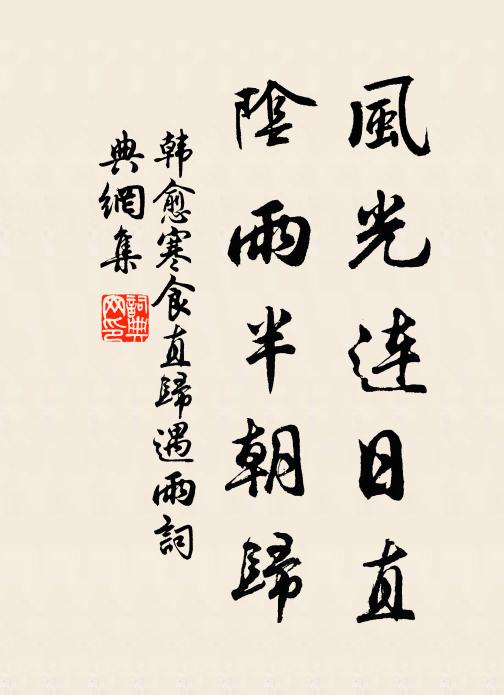 風光連日直
陰雨半朝歸
韓愈寒食直歸遇雨詞
典網集
詞典
网印